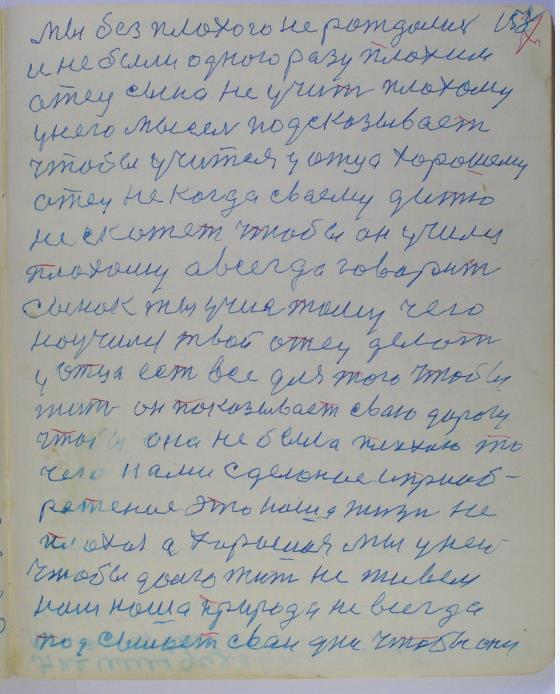 мы без плохого не рождались 157
и не были одного разу плохим
отец сына не учит плохому
у него мысел подсказывает
чтобы учится у отца хорошему
отец не когда сваему дитю
не скажет чтобы он училс
плохому а всегда говарит
сынок ты учис тому чего
научили твой отец делат
у отца ест все для того чтобы
жит он показывает сваю дорогу
чтобы она не была плохаю то
чего нами сделоние и приоб-
ретение это наша жизн не
плохая а хорошая мы у ней
чтобы долго жит не живем
нам наша природа не всегда
подсывает сваи дни чтобы они